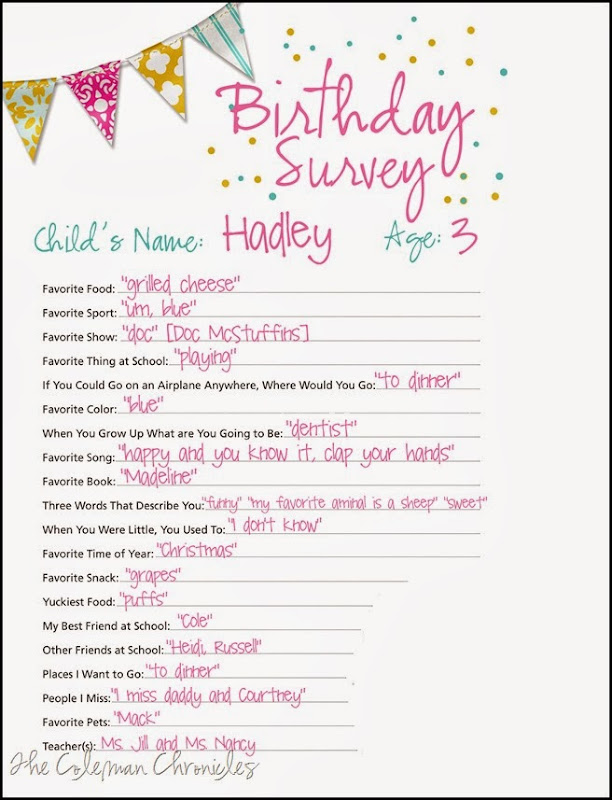 Birthday
Survey
Child's Name: Hadley Age: 3
Favorite Food: "grilled cheese"
Favorite Sport: "um, blue"
Favorite Show: "doc" [Doc McStuffins]
Favorite Thing at School: "playing"
If You Could Go on an Airplane Anywhere, Where Would You Go: "to dinner"
Favorite Color: "blue"
When You Grow Up What are You Going to Be: "dentist"
Favorite Song: "happy and you know it, clap your hands"
Favorite Book: "Madeline"
Three Words That Describe You: "funny" "my favorite aminal is a sheep" "sweet"
When You Were Little, You Used To: "I don't know"
Favorite Time of Year: "Christmas"
Favorite Snack: "grapes"
Yuckiest Food: "puffs"
My Best Friend at School: "Cole"
Other Friends at School: "Heidi, Russell"
Places I Want to Go: "to dinner"
People I Miss: "I miss daddy and Courtney"
Favorite Pets: "Mack"
Teacher(s): Ms. Jill and Ms. Nancy
The Coleman Chronicles